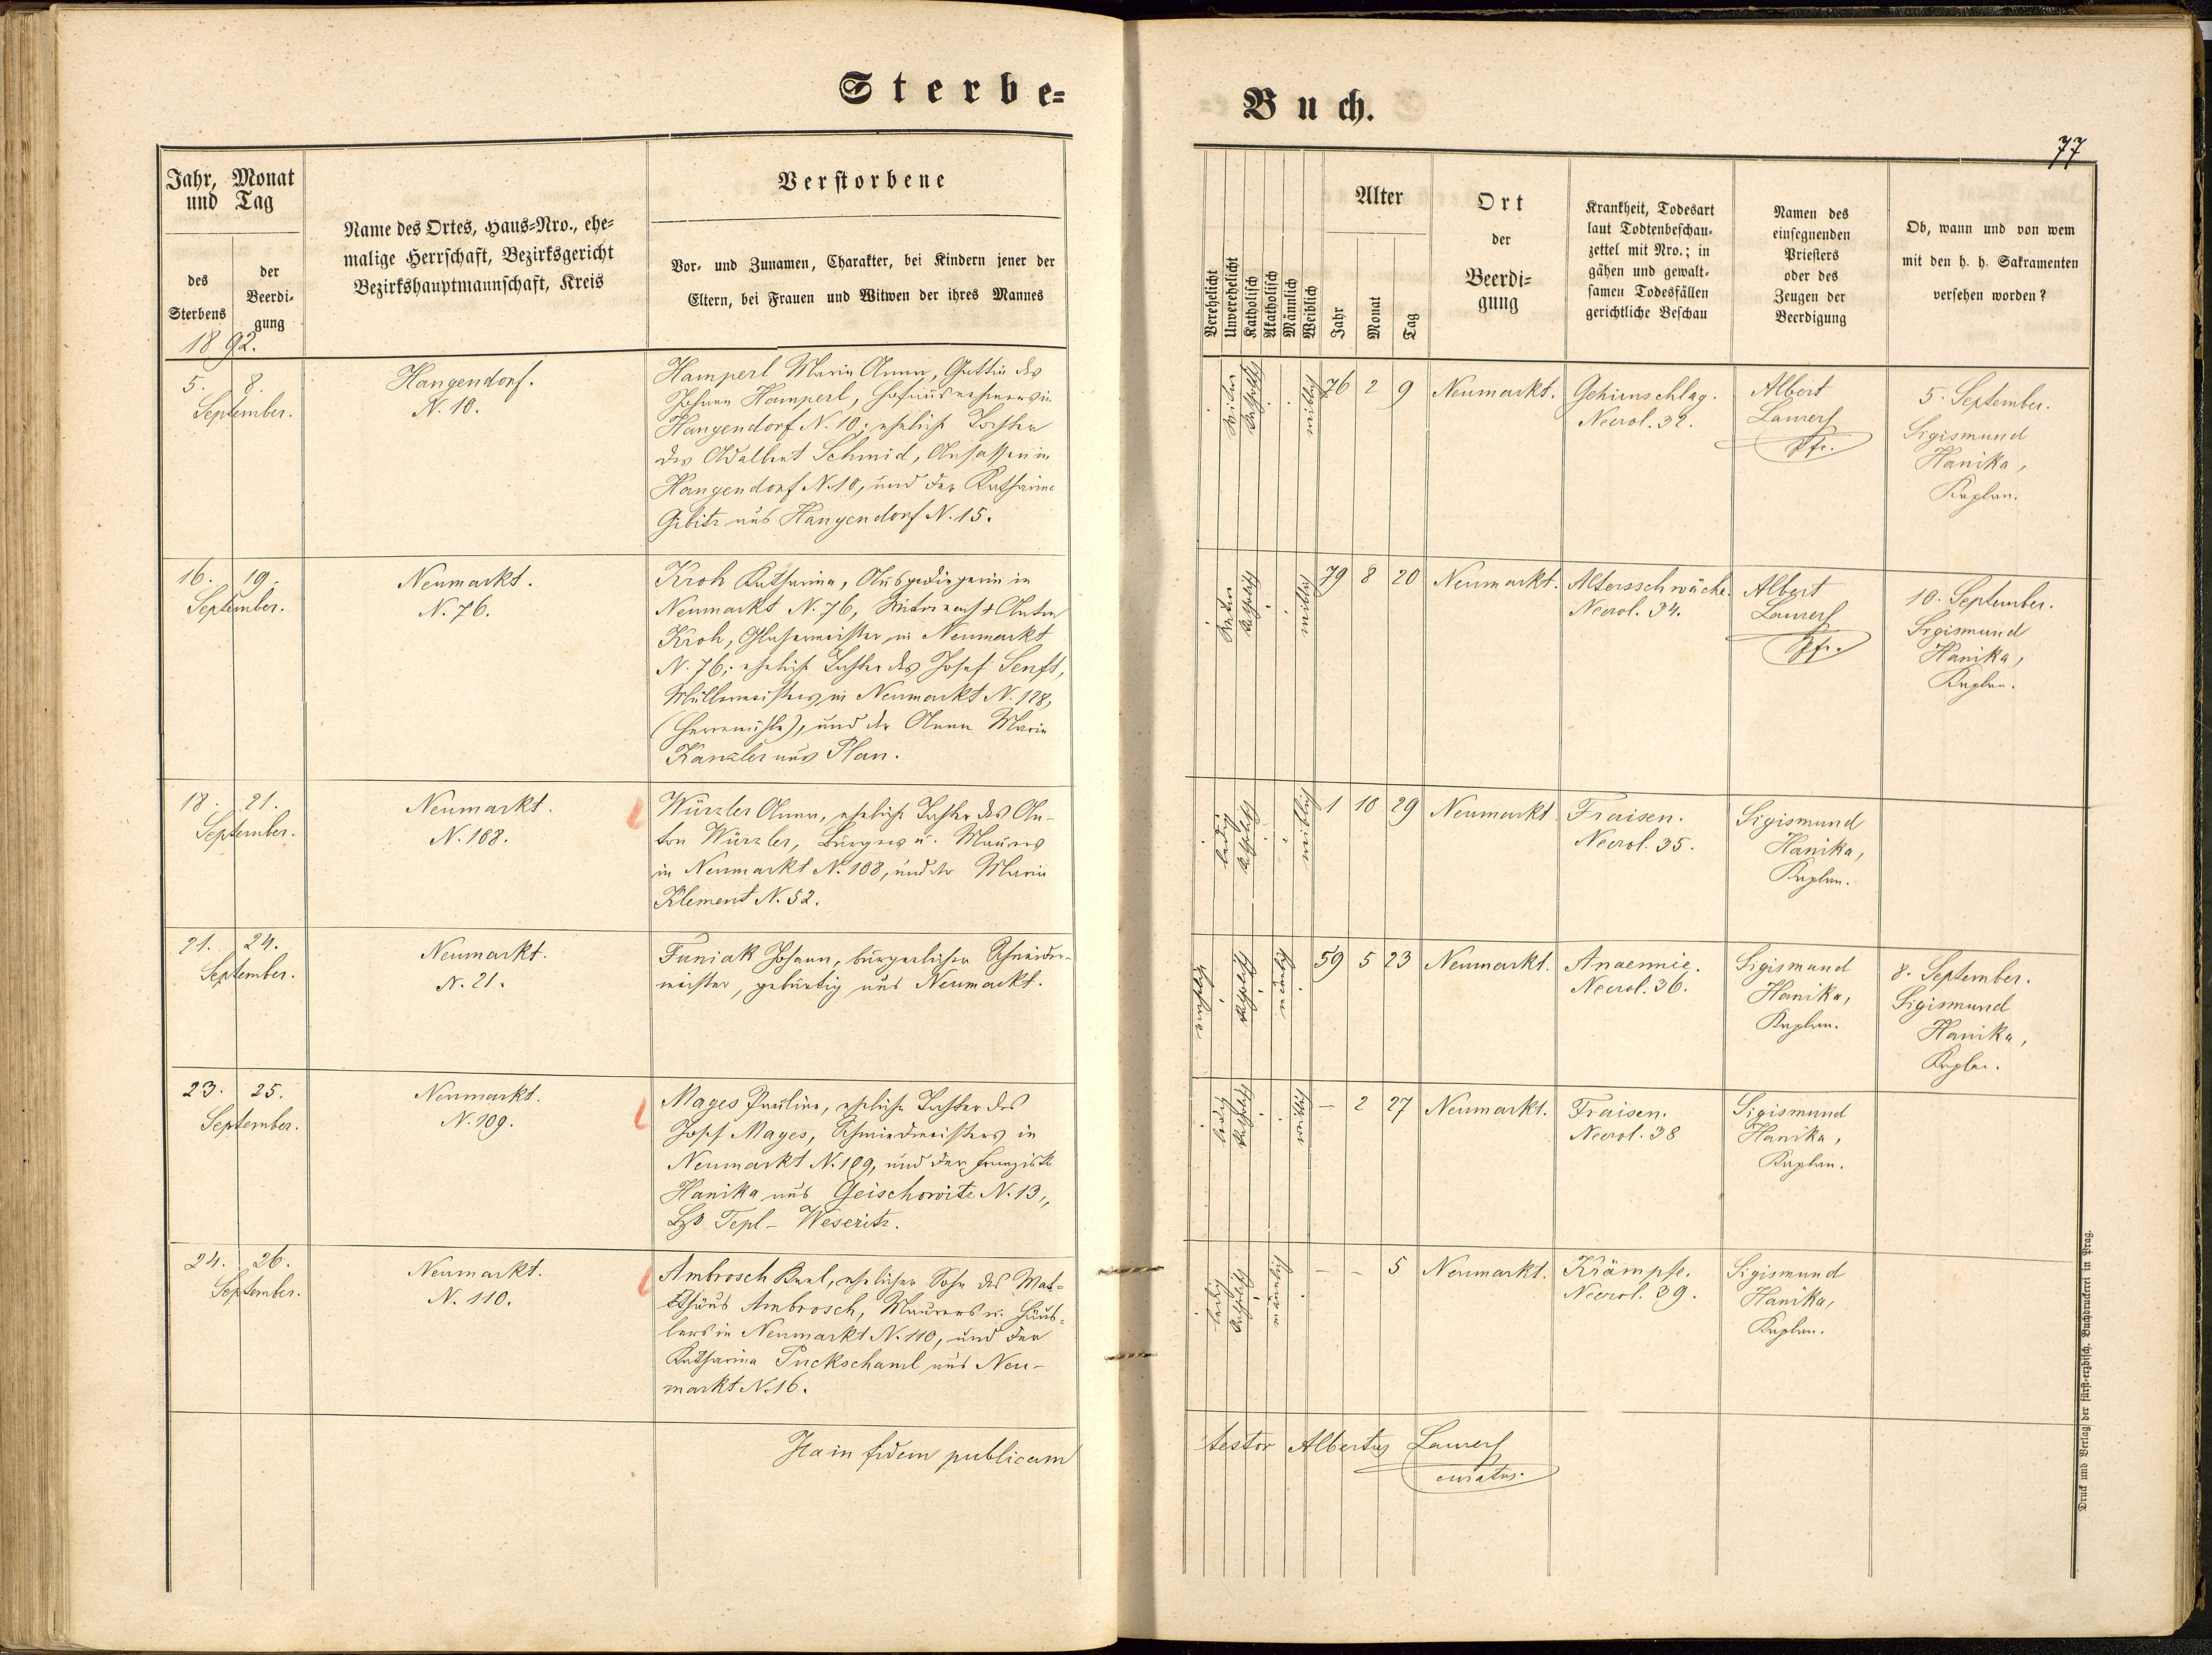 Sterbe=
Buch.
77
Jahr, Monat
und Tag
des
Sterbens
der
Beerdi-
gung
1892.
Name des Ortes, Haus-Nro., ehe-
malige Herrschaft, Bezirksgericht
Bezirkshauptmannschaft, Kreis
Verstorbene
Vor- und Zunamen, Charakter, bei Kindern jener der
Eltern, bei Frauen und Witwen der ihres Mannes
Verehelicht
Unverehelicht
Katholisch
Akatholisch
Männlich
Weiblich
Alter
Jahr
Monat
Tag
Ort
der
Beerdi-
gung
Krankheit, Todesart
laut Todtenbeschau-
zettel mit Nro.; in
gähen und gewalt-
samen Todesfällen
gerichtliche Beschau
Namen des
einsegnenden
Priesters
oder des
Zeugen der
Beerdigung
Ob, wann und von wem
mit den h. h. Sakramenten
versehen worden?
5. 8.
September.
Hangendorf.
N. 10.
Hamperl Maria Anna, Gattin des
Johann Hamperl,
Hangendorf N. 10; eheliche Tochter
des Adalbert Schmid, Ansassen in
Hangendorf N. 10, und der Katharina
Gibitz aus Hangendorf N. 15.
katholisch
weiblich
76 2 9
Neumarkt.
Gehirnschlag.
Necrol. 32.
Albert
Laurer
Pfr.
5. September.
Sigismund
Hanika,
Kaplan.
16. 19.
September.
Neumarkt.
N. 76.
Kroh Katharina, Ausgedingerin in
Neumarkt N. 76, Witwe nach † Anton
Kroh, Glasermeister in Neumarkt
N. 76; eheliche Tochter des Josef Senft,
Müllermeisters in Neumarkt N. 128,
(Herrnmühle), und der Anna Maria
Kanzler aus Plan.
Witwe
katholisch
weiblich
79 8 20
Neumarkt.
Altersschwäche.
Necrol. 34.
Albert
Laurer
Pfr.
10. September.
Sigismund
Hanika,
Kaplan.
18. 21.
September.
Neumarkt.
N. 108.
Würzler Anna, eheliche Tochter des An-
ton Würzler, Bürgers u. Maurers
in Neumarkt N. 108, und der Maria
Klement N. 52.
ledig
katholisch
weiblich
1 10 29
Neumarkt
Fraisen.
Necrol. 35.
Sigismund
Hanika,
Kaplan.
21. 24.
September.
Neumarkt.
N. 21.
Funiak Johann, bürgerlicher Schneider-
meister, gebürtig aus Neumarkt.
verehelicht
katholisch
männlich
59 5 23
Neumarkt.
Anaemie.
Necrol. 36.
Sigismund
Hanika,
Kaplan.
8. September.
Sigismund
Hanika,
Kaplan.
23. 25.
September.
Neumarkt.
N. 109.
Mages Pauline, eheliche Tochter des
Josef Mages, Schmiedmeisters in
Neumarkt N. 109, und der Franziska
Hanika aus Geischowitz N. 13,
Bzk Tepl - Weseritz.
ledig
katholisch
weiblich
– 2 27
Neumarkt.
Fraisen.
Necrol. 38
Sigismund
Hanika,
Kaplan.
24. 26.
September.
Neumarkt.
N. 110.
Ambrosch Karl, ehelicher Sohn des Mat-
thäus Ambrosch, Maurers u. Häus-
lers in Neumarkt N. 110, und der
Katharina Puckschaml aus Neu-
markt N. 16.
ledig
katholisch
männlich
– – 5
Neumarkt.
Krämpfe.
Necrol. 39.
Sigismund
Hanika,
Kaplan.
Ita in fidem publicam
testor Albertus Laurer
curatus.
Druck und Verlag der fürst-erzbisch. Buchdruckerei in Prag.